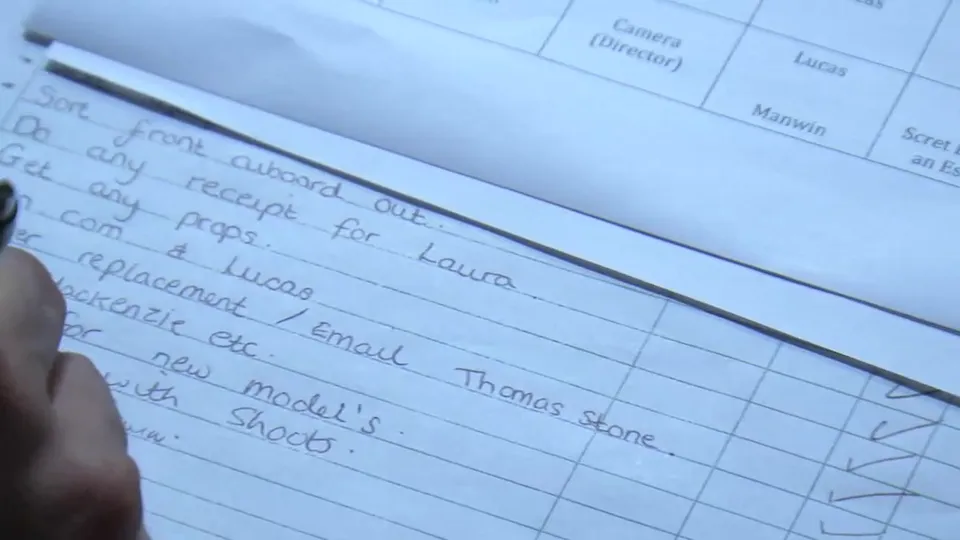 Camera
(Director)
Lucas
Manwin
an Es
Sort front cuboard out.
Do any receipt for Laura.
Get any props.
com & Lucas
replacement / Email Thomas Stone.
ockenzie etc.
for new model's.
with Shoots.